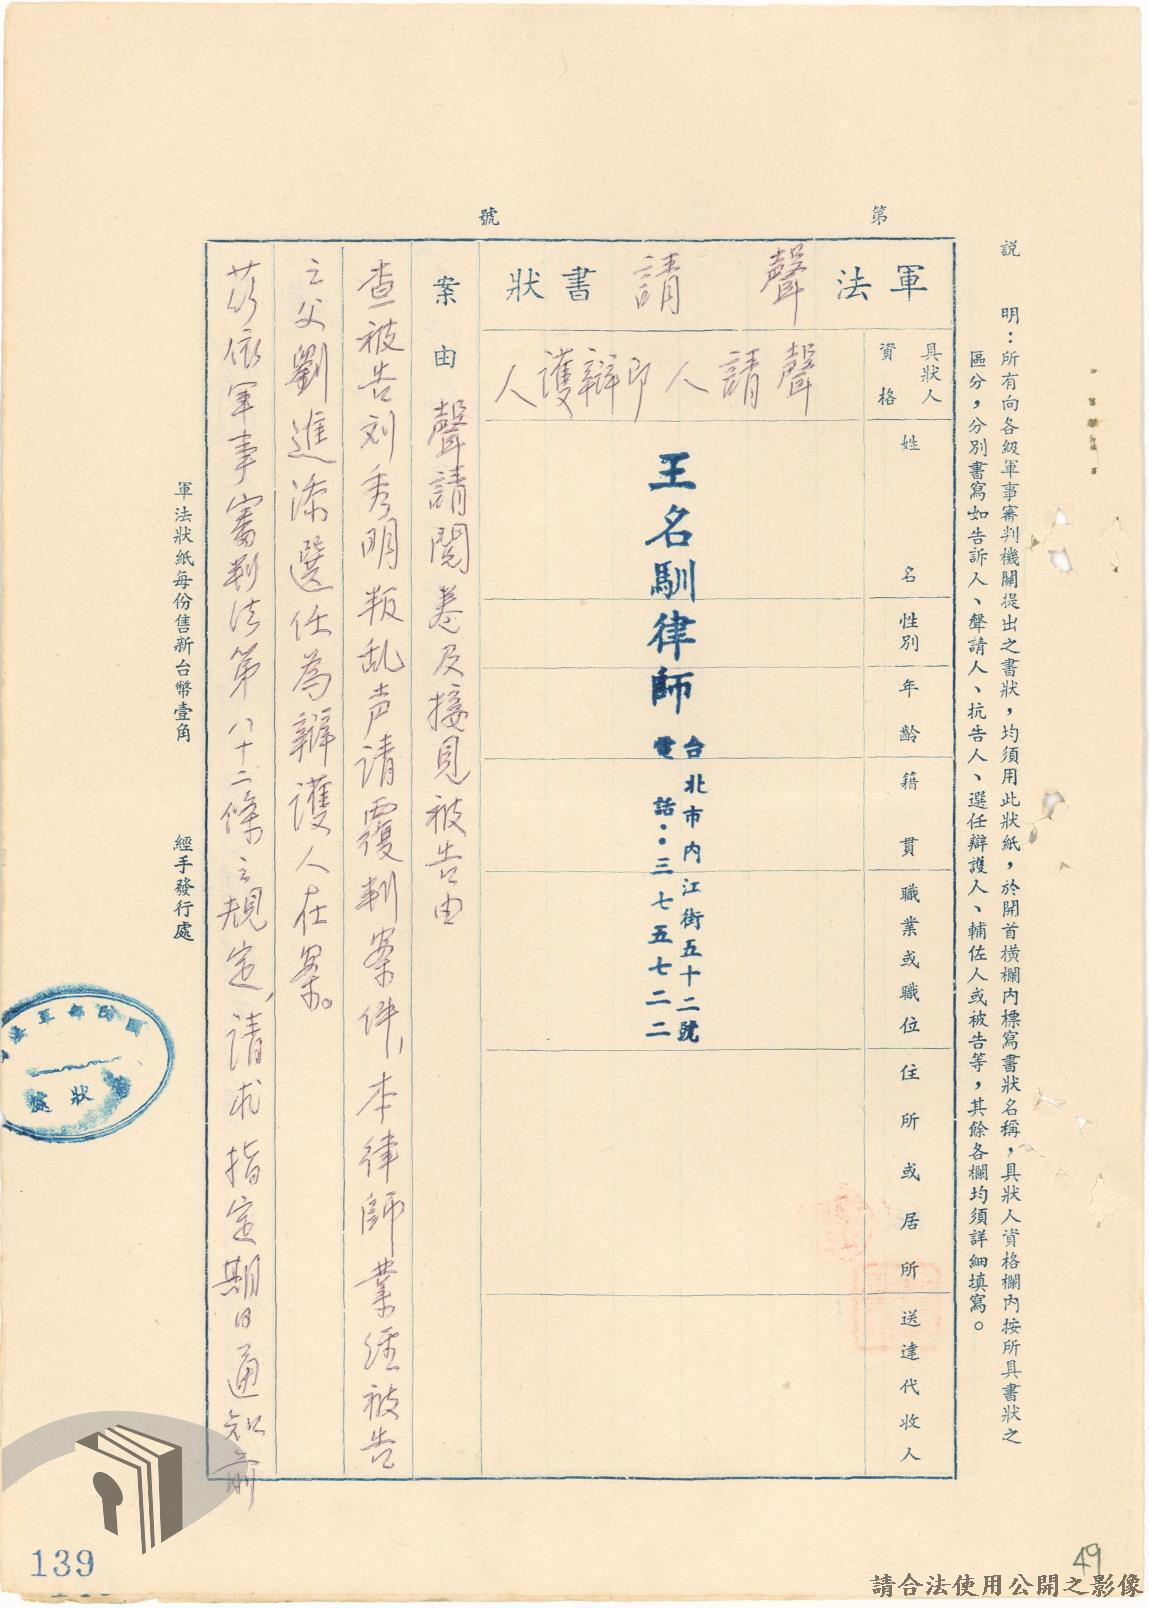 第　號
說　明：所有向各級軍事審判機關提出之書狀，均須用此狀紙，於開首橫欄內標寫書狀名稱，具狀人資格欄內按所具書狀之
區分，分別書寫如告訴人、聲請人、抗告人、選任辯護人、輔佐人或被告等，其餘各欄均須詳細填寫。
軍法聲請書狀
具狀人
資格
聲請人即辯護人
姓名
性別
年齡
籍貫
職業或職位
住所或居所
送達代收人
王名馴律師
台北市內江街五十二號
電話：三七五七二二
案由　聲請閱卷及接見被告由
查被告刘秀明叛乱声请覆判案件，本律師業經被告
之父劉進添選任為辯護人在案。
茲依軍事審判法第八十二條之規定，请求指定期日通知前
軍法狀紙每份售新台幣壹角　經手發行處
139
49
請合法使用公開之影像